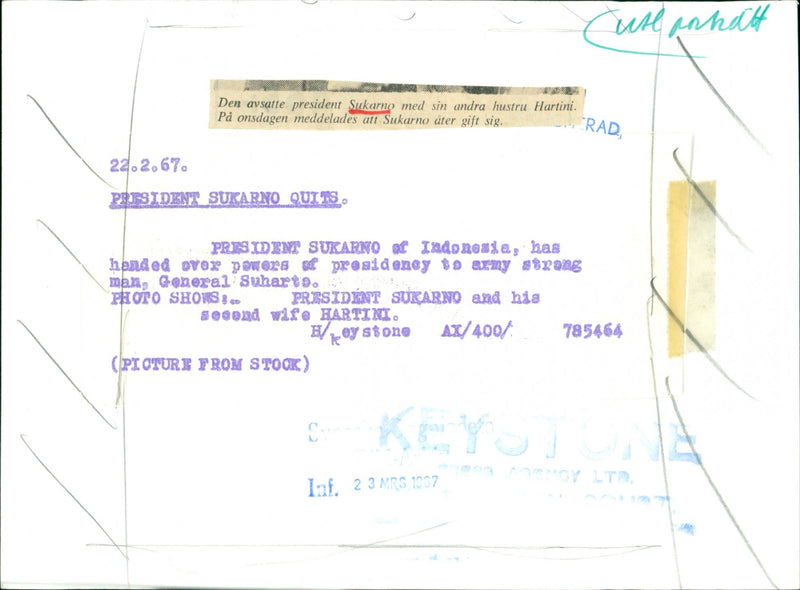 utl porträtt
Den avsatte president Sukarno med sin andra hustru Hartini.
På onsdagen meddelades att Sukarno åter gift sig.
TRAD,
22.2.67.
PRESIDENT SUKARNO QUITS.
PRESIDENT SUKARNO of Indonesia, has
handed over powers of presidency to army strong
man, General Suharto.
PHOTO SHOWS:- PRESIDENT SUKARNO and his
second wife HARTINI.
H/Keystone AX/400/ 785464
(PICTURE FROM STOCK)
KEYSTONE
PRESS AGENCY LTD.
Inf. 23 MRS 1967